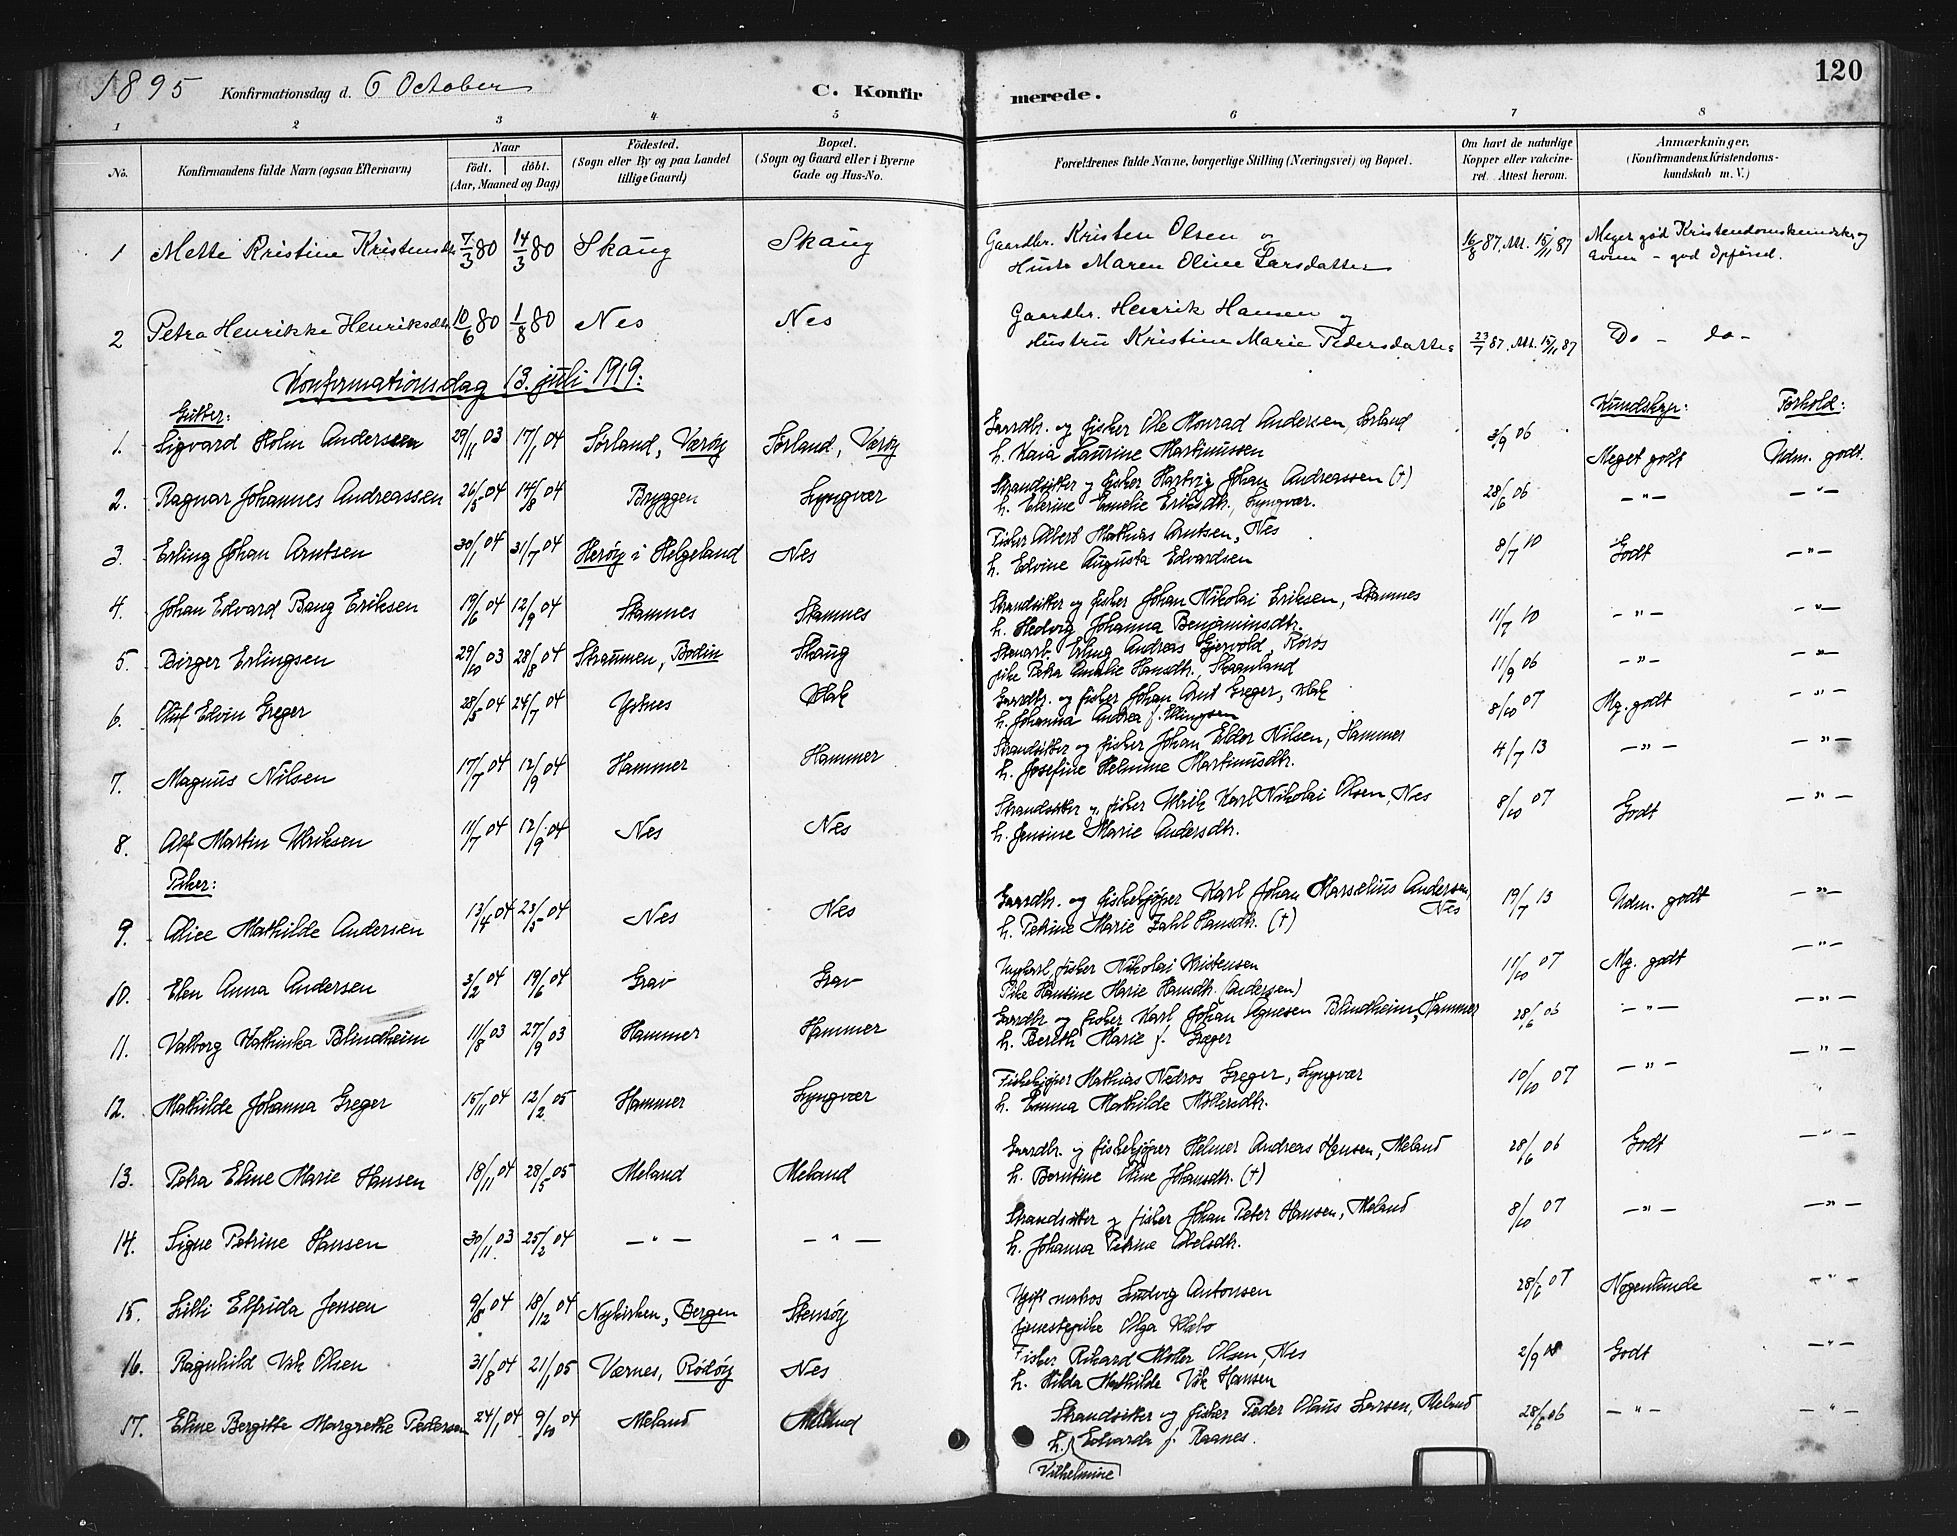 120
1895 Konfirmationsdag d. 6 October C. Konfirmerede.
1 2 3 4 5 6 7 8
No. Konfirmandens fulde Navn (ogsaa Efternavn) Naar født. døbt. (Aar, Maaned og Dag) Fødested. (Sogn eller By og paa Landet tillige Gaard) Bopæl. (Sogn og Gaard eller i Byerne Gade og Hus-No. Forældrenes fulde Navne, borgerlige Stilling (Næringsvei) og Bopæl. Om havt de naturlige Kopper eller vakcineret. Attest herom. Anmærkninger. (Konfirmandens Kristendomskundskab m. V.)
1 Mette Kristine Kristensdtr 7/3 80 14/3 80 Skaug Skaug Gaardbr. Kristen Olsen og 16/8 87. Att. 15/11 87 Meget god Kristendomskundskab og
Hustr Maren Oline Larsdatter god Opførsel.
2 Petra Henrikke Henriksdtr 10/6 80 1/8 80 Nes Nes Gaardbr. Henrik Hansen og
Hustru Kristine Marie Pedersdatter 23/7 87. Att. 15/11 87 Do – do –
Konfirmationsdag 13. juli 1919:
Gutter: Kundskap: Forhold:
1. Sigvard Holm Anderssen 29/11 03 17/1 04 Sørland, Værøy Sørland, Værøy Gaardbr. og fisker Ole Konrad Andersen, Sørland 3/9 06 Meget godt Udm. godt.
h. Kaia Laurine Martinussen
2. Ragnar Johannes Andreassen 26/5 04 14/8 04 Bryggen Lyngvær Strandsitter og fisker Hartvig Johan Andreassen (†) 28/6 06 – " – – " –
h. Elerine Emelie Eriksdtr., Lyngvær.
3. Erling Johan Arntsen 30/1 04 31/7 04 Herøy i Helgeland Nes Fisker Albert Mathias Arntsen, Nes 8/7 10 Godt – " –
h. Edvine Augusta Edvardsen
4. Johan Edvard Bang Eriksen 19/6 04 12/9 04 Stamnes Stamnes Strandsitter og fisker Johan Nikolai Eriksen, Stamnes 11/7 10 – " – – " –
h. Hedvig Johanna Benjaminsdtr.
5. Birger Erlingsen 29/10 03 28/8 04 Straumen, Bodin Skaug Stenarb. Erling Andreas Gjervold, Røros 11/9 06 – " – – " –
pike Petra Amalie Hansdtr., Skaanland
6. Oluf Edvin Greger 28/5 04 24/7 04 Ystnes Gaardbr. og fisker Johan Arnt Greger, 8/10 07 Mg. godt – " –
h. Johanna Andrea f. Ellingsen
7. Magnus Nilsen 17/7 04 12/9 04 Hammer Hammer Strandsitter og fisker Johan Elder Nilsen, Hammer 4/7 13 – " – – " –
h. Josefine Helmine Martinusdtr.
8. Alf Martin Ulriksen 11/7 04 12/9 04 Nes Nes Strandsitter og fisker Ulrik Karl Nikolai Olsen, Nes 8/10 07 Godt – " –
h. Jensine Marie Andersdtr.
Piker:
9. Alice Mathilde Andersen 13/4 04 23/5 04 Nes Nes Gaardbr. og fiskekjøper Karl Johan Marselius Andersen, Nes 19/7 13 Udm. godt – " –
h. Petrine Marie Zahl Hansdtr. (†)
10. Elen Anna Andersen 3/2 04 19/6 04 Grav Grav Ungkarl, fisker Nikolai Kristensen 11/10 07 Mg. godt – " –
Pike Hansine Marie Hansdtr. (Andersen)
11. Valborg Kathinka Blindheim 11/8 03 27/9 03 Hammer Hammer Gaardbr og fisker Karl Johan Agnesen Blindheim, Hammer 28/6 06 – " – – " –
h. Bereth Marie f. Greger
12. Mathilde Johanna Greger 15/11 04 12/2 05 Hammer Lyngvær Fiskekjøper Mathias Nedros Greger, Lyngvær 10/10 07 – " – – " –
h. Emma Mathilde Møllersdtr.
13. Petra Eline Marie Hansen 18/11 04 28/5 05 Meland Meland Gaardbr. og fiskekjøper Helmer Andreas Hansen, Meland 28/6 06 Godt – " –
h. Berntine Oline Johansdtr. (†)
14. Signe Petrine Hansen 30/11 03 25/2 04 – " – – " – Strandsitter og fisker Johan Peter Hansen, Meland 8/10 07 – " – – " –
h. Johanna Petrine Abelsdtr.
15. Lilli Elfrida Jensen 9/8 04 18/12 04 Nykirken, Bergen Stensøy Ugift matros Ludvig Antonsen 28/6 07 Nogenlunde – " –
tjenestepike Olga Klæbo
16. Ragnhild Vik Olsen 31/8 04 21/1 05 Værnes, Rødøy Nes Fisker Rikard Møller Olsen, Nes 2/9 08 Godt – " –
h. Hilda Mathilde Vik Hansen
17. Eline Bergitte Margrethe Pedersen 24/1 04 9/10 04 Meland Meland Strandsitter og fisker Peder Olaus Larsen, Meland 28/6 06 – " – – " –
h. Edvarda f. Raanes.
Vilhelmine